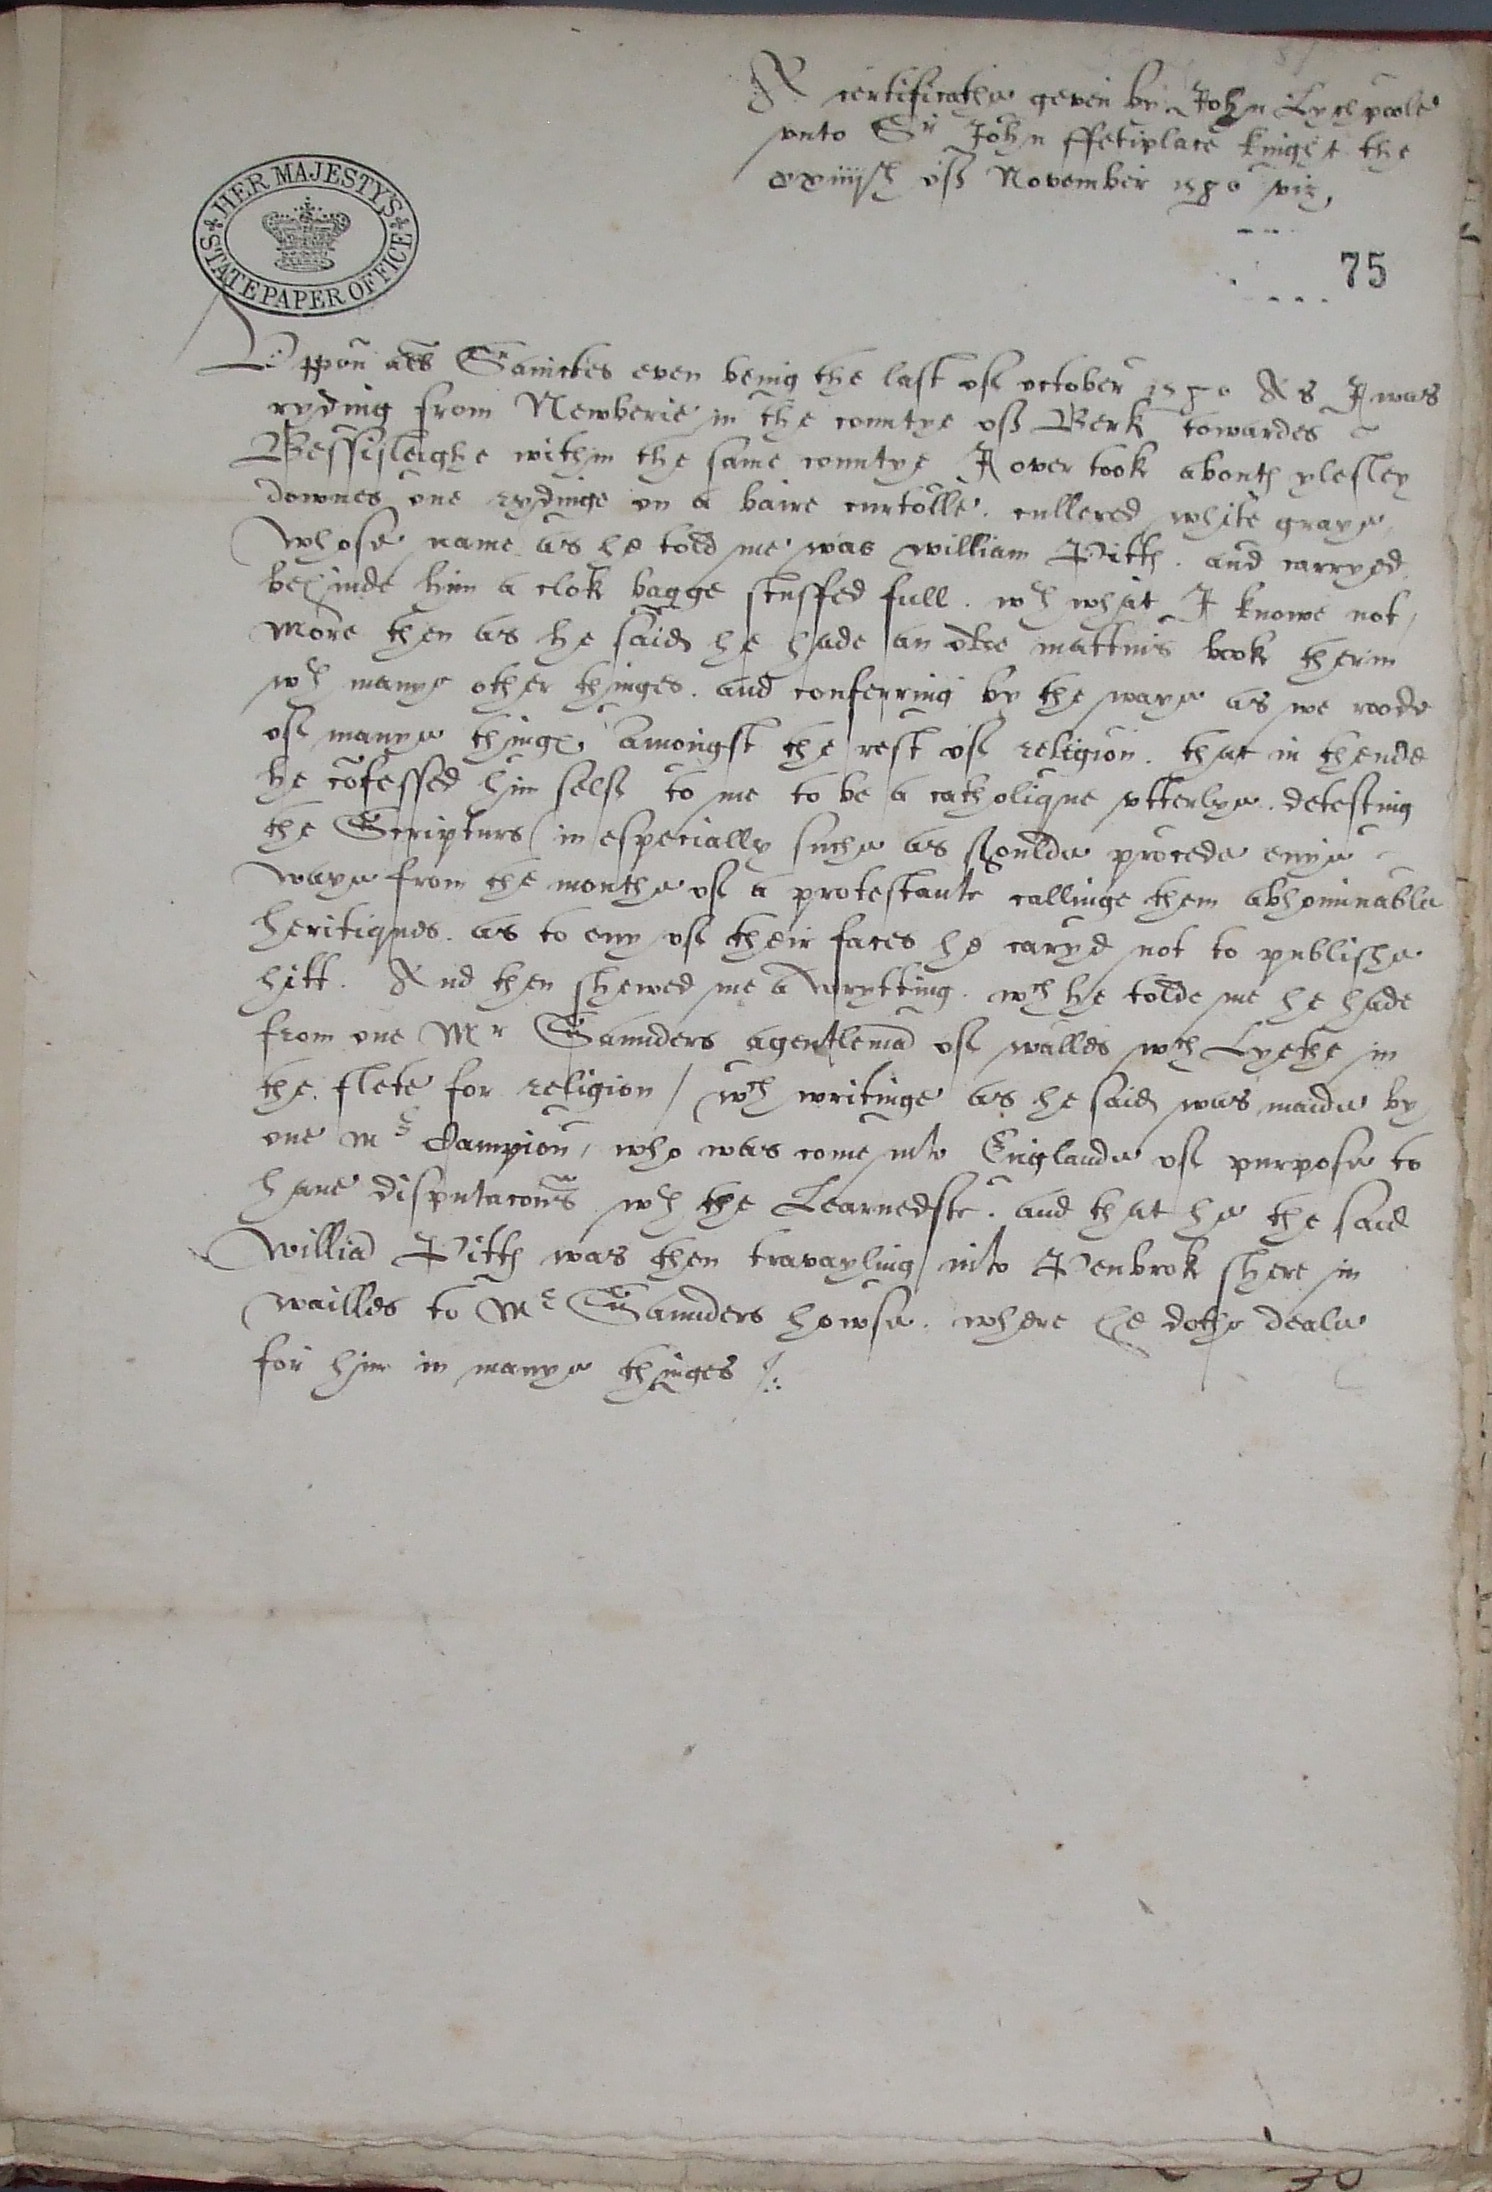 A certificathe geven by John Lychpoole
vnto Sr John ffetiplace knight the
xxiiijth off November 1580 viz,
HER MAJESTY'S STATE PAPER OFFICE
75
Vppon all Sainctes even being the last off october 1580 As I was
ryding from Newberie in the countye off Berk towardes
Bessisleighe within the same countye I over took abouth ylesley
downes one rydinge on a baire curtolle. cullered white graye
Whose name as he told me was william Pitth. and carryed
behinde him a clok bagge stuffed full. wth what I knowe not /
More then as he said he hade an olde mattins book therin
wth manye other thinges. and conferring by the waye as we roode
off manye thinges, amongst the rest off religion. that in thende
he cofessed him self to me to be a catholique vtterlye. detesting
the Scripturs (in especially suche as shoulde procede enye
waye from the mouthe off a protestante callinge them abhominable
heritiques. as to eny off their faces he caryd not to publishe
hitt. And then shewed me a wrytting. wch he tolde me he hade
from one Mr Saunders a gentlema off walles wch Lyethe in
the flete for religion / wch writinge as he said was maide by
one Mr Campion, who was come into Englande off purpose to
haue disputacons wth the Learnedste. and that he the said
Willia Pitth was then travayling into Penbrok shere in
wailles to Mr Saunders howse. where he dothe deale
for him in manye thinges /.